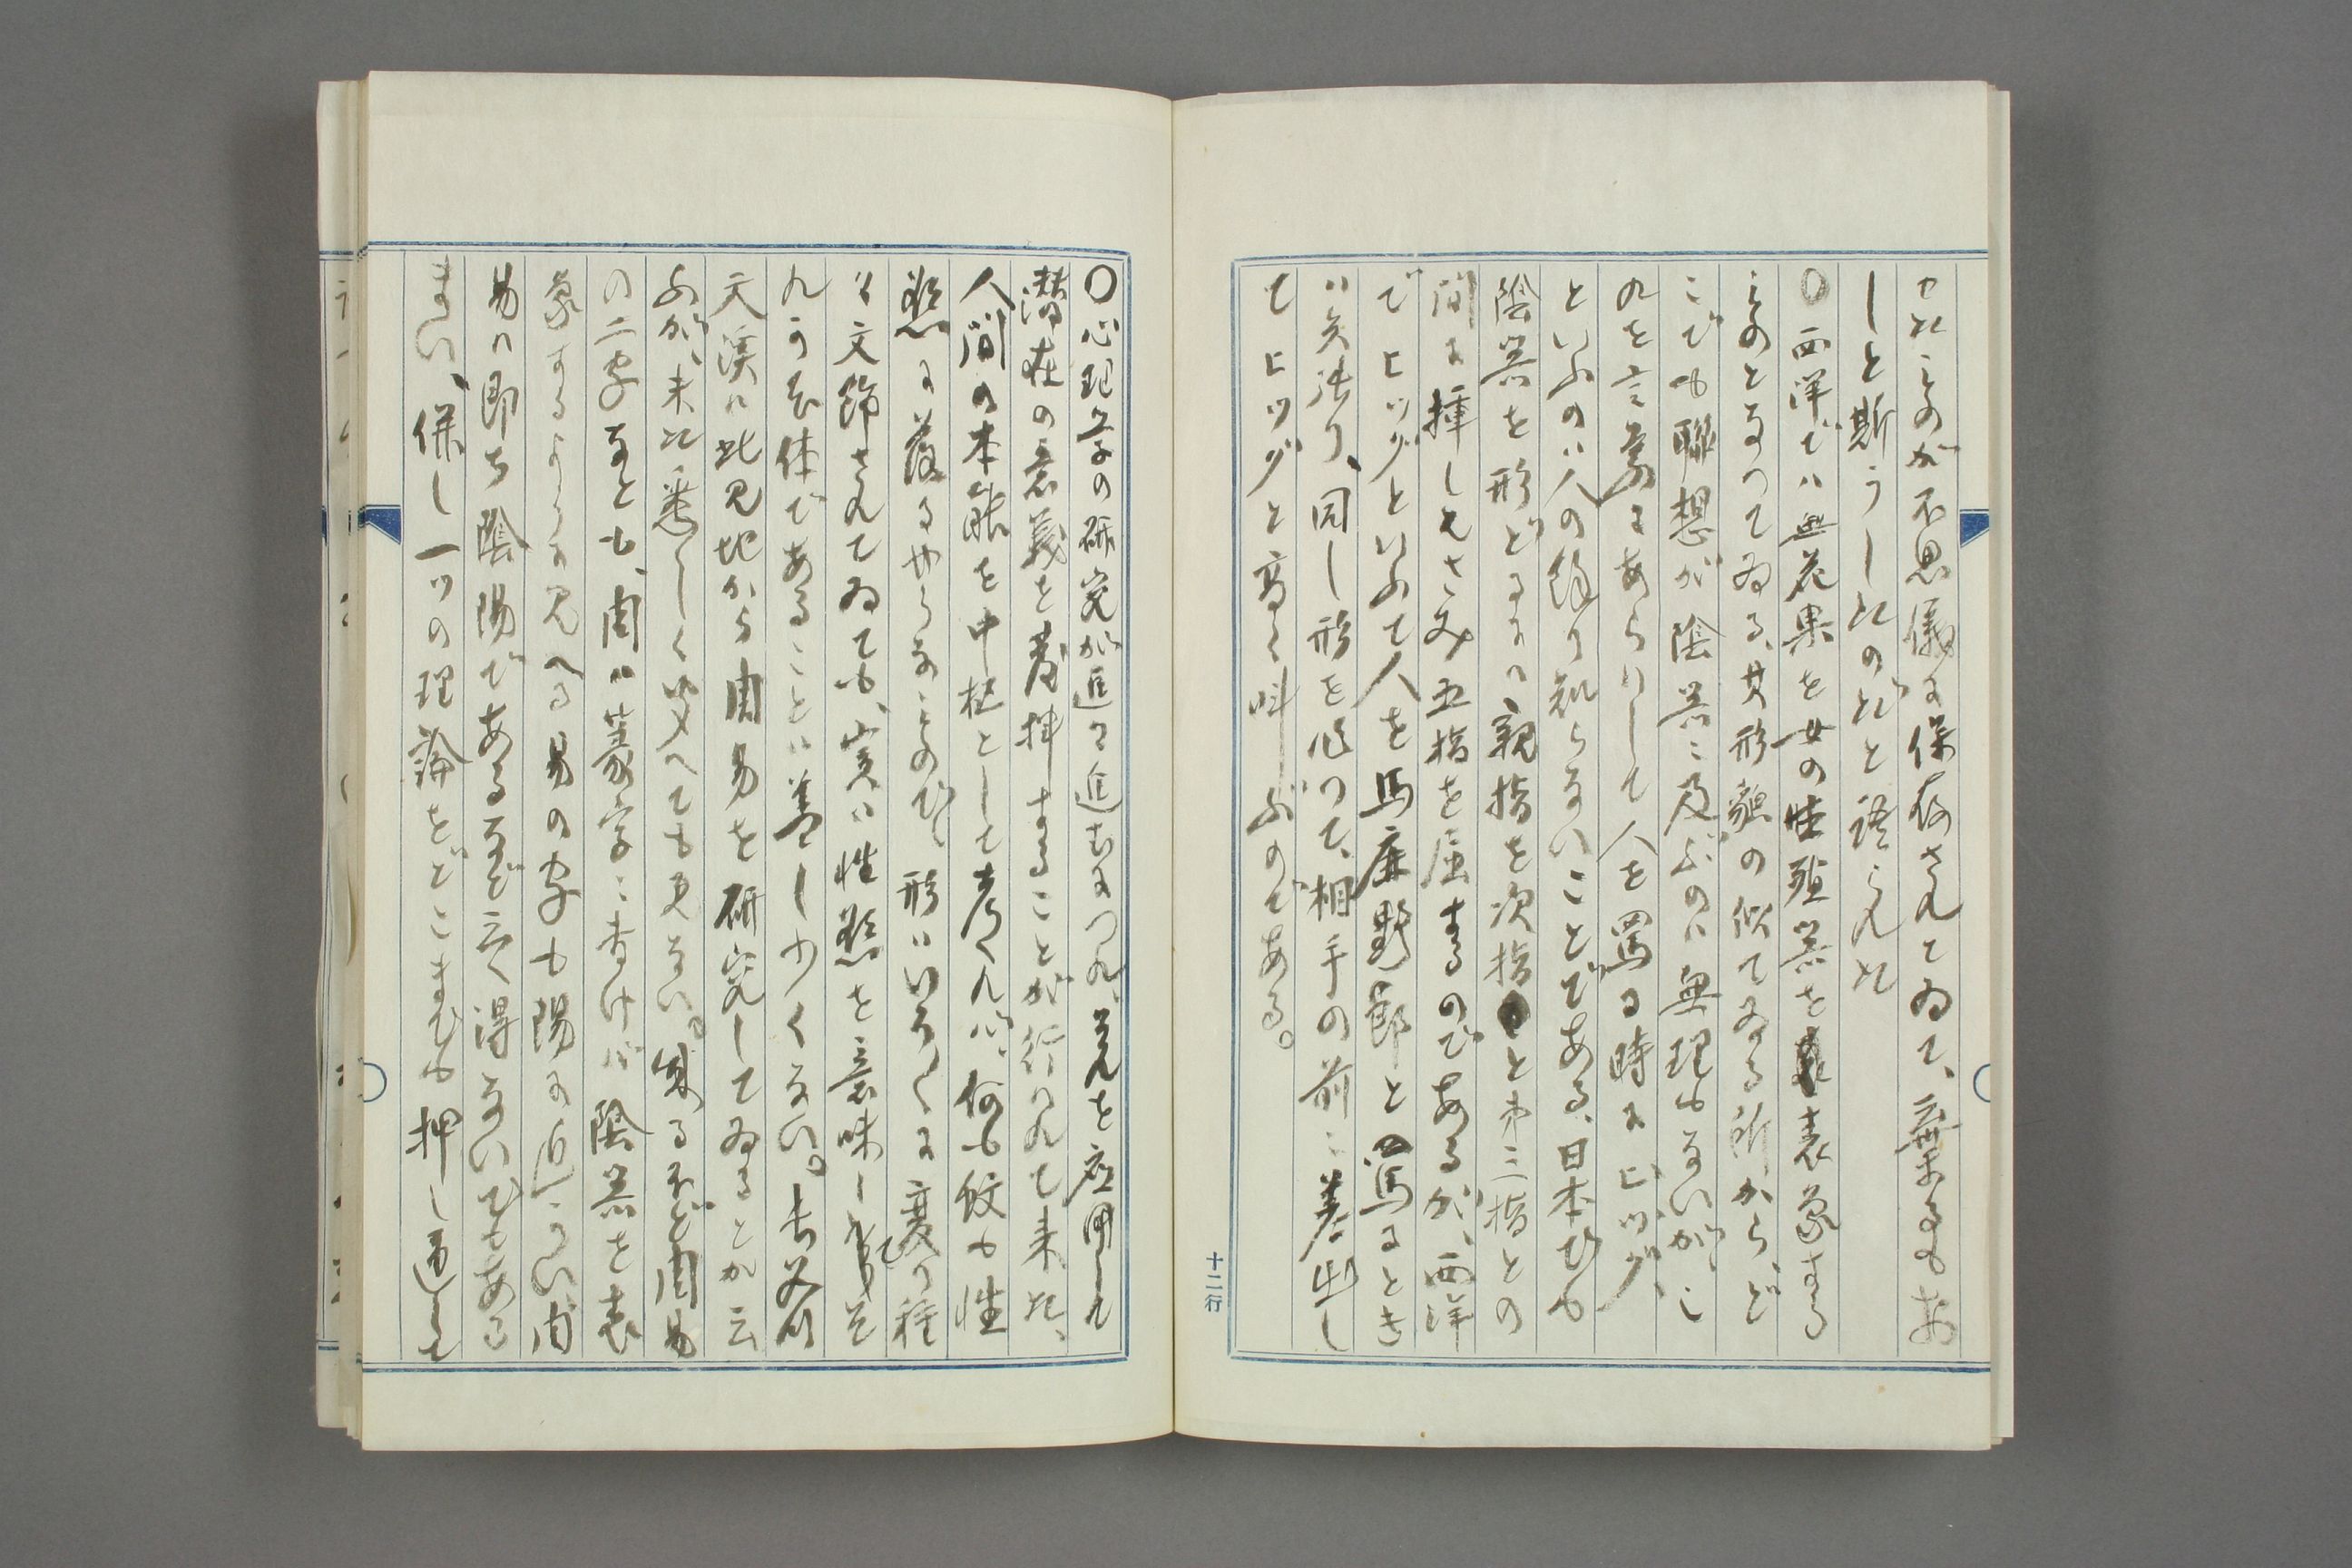 セたものが不思儀に保存されてゐて、棄るもお
しと斯うしたのだと語られた
〇西洋でハ無花果を女の生殖器を表象する
ものとなつてゐる、其形貌の似てゐる所から、ど
こでも聯想が陰器ニ及ぶのハ無理もないが、こ
れを言葉にあらハして人を罵る時にヒツグ、
といふのハ人の余り知らないことである、日本でも
陰器を形どるには親指を次指と第三指との
間に挿しはさみ五指を屈するのであるが、西洋
でヒツグといふて人を馬鹿野郎と罵るとき
ハ矢張り、同し形を作つて、相手の前ニ差出し
てヒツグと高く叫ぶのである。
十二行
〇心理学の研究が進に進むにつれ、是を応用した
潜在の意義を発揮することが行ハれて来た、
人間の本能を中枢として考くれバ、何も蚊も性
慾に落るやうなもので、形ハいろ〱に変り種
々文飾されてゐても、実ハ性慾を意味し
れうる体であることハ蓋し少くない。長谷川
天渓は此見地から周易を研究してゐるとか云
ふが、未た悉しく聞ゝても見ない。成るほど周易
の二字なとも、周ハ篆字ニ書けバ陰器を表
象するように見へる易の字も陽に近こい、周
易は即ち陰陽であるなど云く得ないでもある
まい、併し一ツの理論をどこまでも押し通して